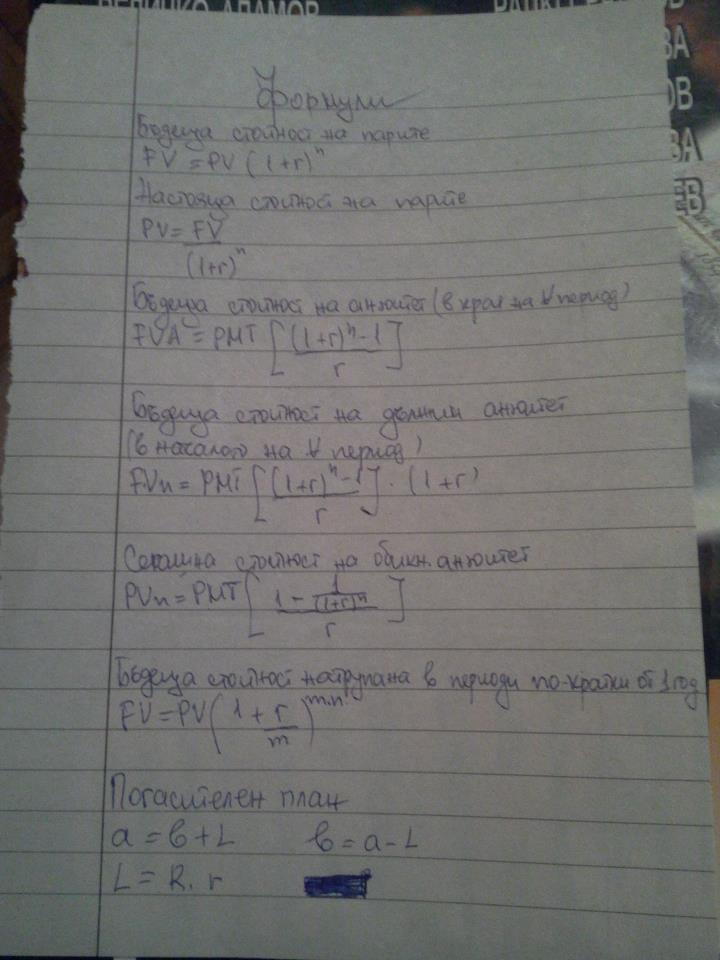 ВЕЛИЧКО АДАМОВ
Формули
Бъдеща стойност на парите
FV = PV (1+r)^n
Настояща стойност на парите
PV = FV / (1+r)^n
Бъдеща стойност на анюитет (в края на ∀ период)
FVA = PMT [ ((1+r)^n - 1) / r ]
Бъдеща стойност на дължим анюитет
(в началото на ∀ период)
FVn = PMT [ ((1+r)^n - 1) / r ] . (1+r)
Сегашна стойност на обикн. анюитет
PVn = PMT [ (1 - 1/(1+r)^n) / r ]
Бъдеща стойност натрупана в периоди по-кратки от 1 год
FV = PV (1 + r/m)^m.n
Погасителен план
a = b + L b = a - L
L = R. r